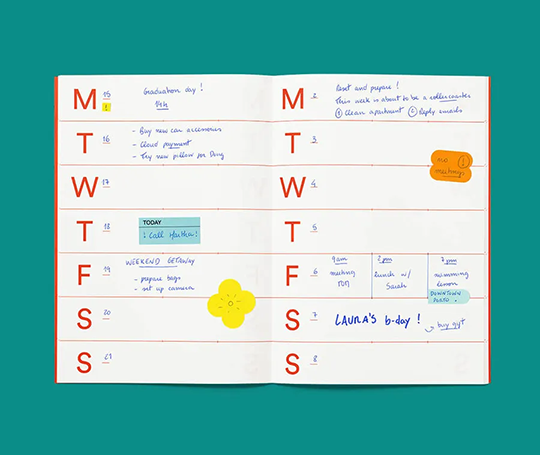 M 15 Graduation day!
1 14h
T 16 - Buy new car accessories
- Cloud payment
- Try new pillow for Doug
W 17
T 18 TODAY
! Call Martha!
F 19 WEEKEND GETAWAY
- prepare bags
- set up camera
S 20
S 21
M 2 Reset and prepare!
This week is about to be a rollercoaster
① Clean apartment ② Reply emails
T 3
no
meetings !
W 4
T 5
F 6 9am 2pm 7pm
meeting lunch w/ swimming
Sarah lesson
DOWNTOWN
S 7 LAURA'S b-day!
buy gift
S 8